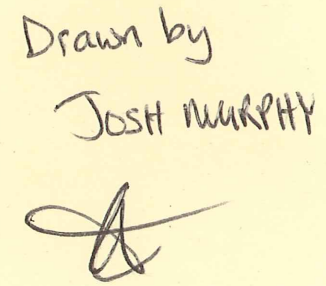 Drawn by
JOSH MURPHY